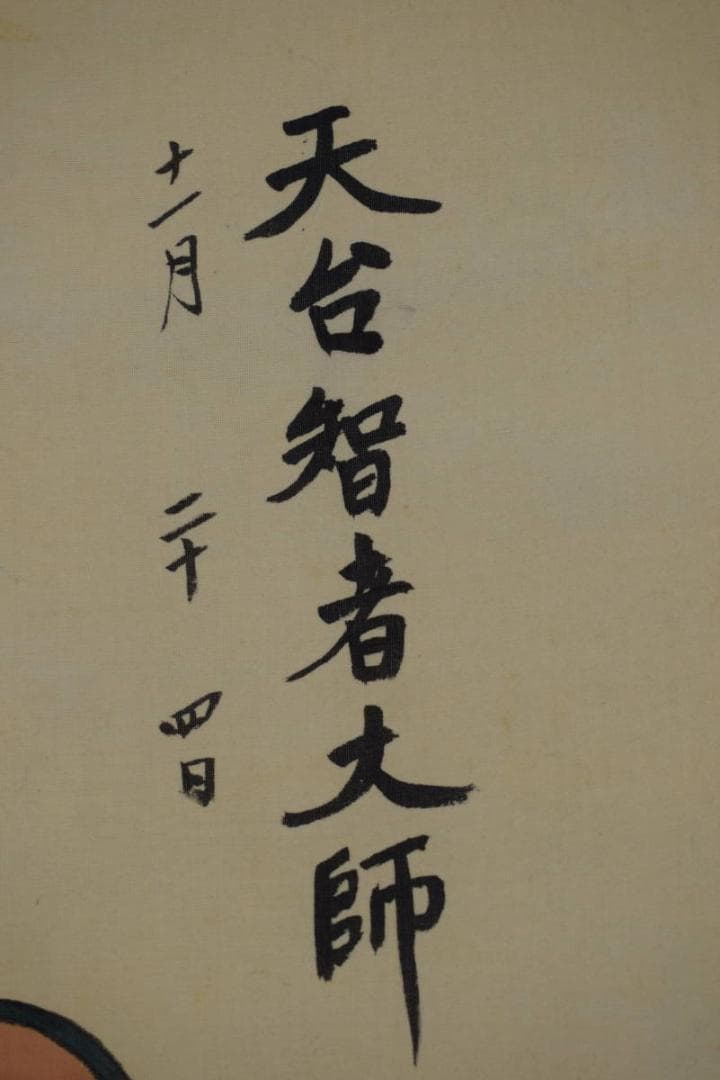 天台智者大師
十一月二十四日